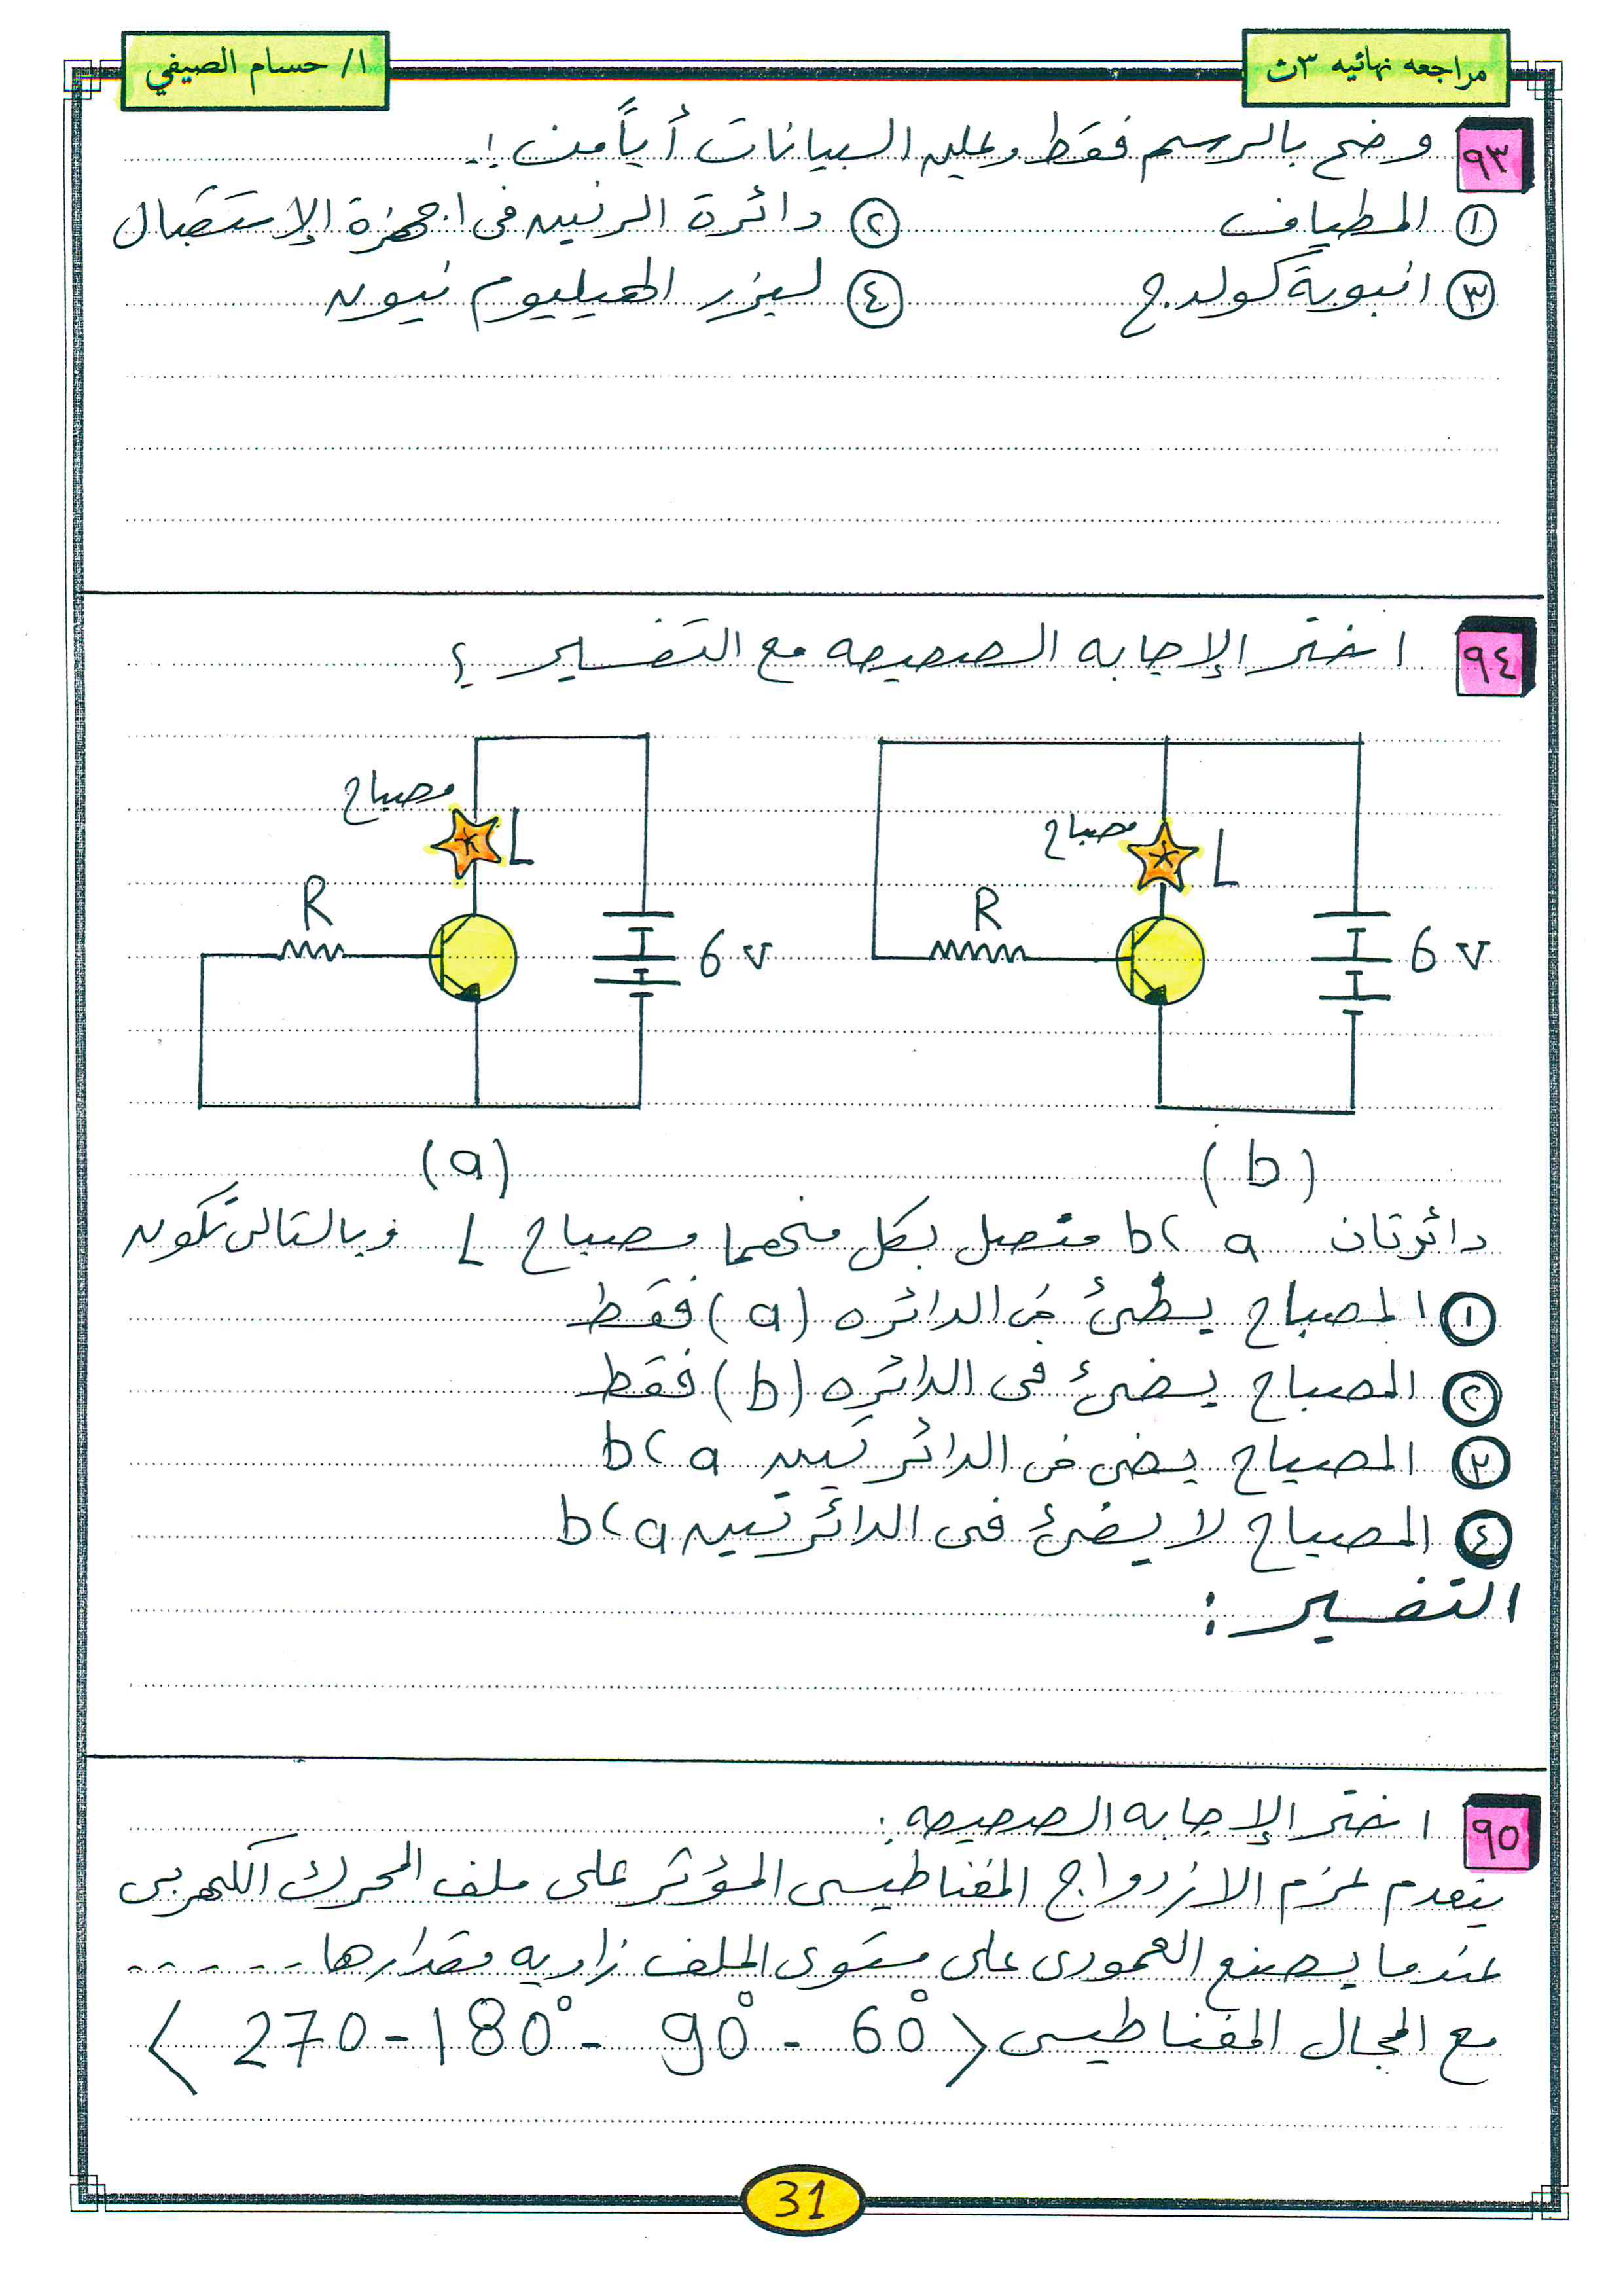 مراجعه نهائيه ٣ث
ا/ حسام الصيفي
٩٣ وضح بالرسم فقط وعليه البيانات أياً من :-
١ المطياف ٢ دائرة الرنين فى اجهزة الإستقبال
٣ انبوبة كولدج ٤ ليزر الهيليوم نيون
٩٤ اختر الإجابه الصحيحه مع التفسير ؟
مصباح L R 6 V
مصباح L R 6 V
(a) (b)
دائرتان a ، b متصل بكل منهما مصباح L وبالتالى تكون
١ المصباح يضئ فى الدائره (a) فقط
٢ المصباح يضئ فى الدائره (b) فقط
٣ المصباح يضئ فى الدائرتين a ، b
٤ المصباح لا يضئ فى الدائرتين a ، b
التفسير :
٩٥ اختر الإجابه الصحيحه :
ينعدم عزم الازدواج المغناطيسى المؤثر على ملف المحرك الكهربى
عندما يصنع العمودى على مستوى الملف زاويه مقدارها ------
مع المجال المغناطيسى < 60° - 90° - 180° - 270 >
31